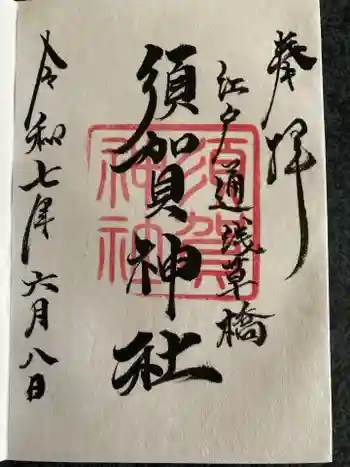 奉拝
江戸通浅草橋
須賀神社
須賀神社
令和七年六月八日